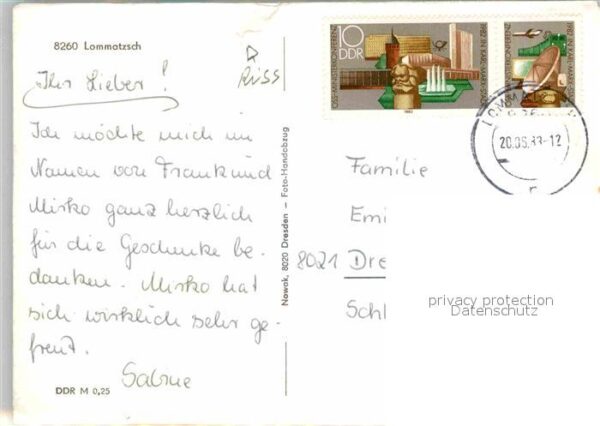 8260 Lommatzsch
RISS
Ihr Lieben!
Ich möchte mich im
Namen von Frank und
Mirko ganz herzlich
für die Geschenke be-
danken. Mirko hat
sich wirklich sehr ge-
freut.
Sabine
DDR M 0,25
Nowak, 8020 Dresden – Foto-Handabzug
10
DDR
1982 IN KARL-MARX-STADT
1982
20.06.83-12
Familie
Emi
8021 Dre
Schl
privacy protection
Datenschutz